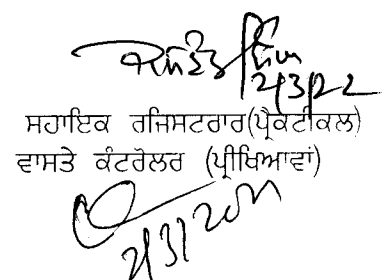 2/3/22
ਸਹਾਇਕ ਰਜਿਸਟਰਾਰ(ਪ੍ਰੈਕਟੀਕਲ)
ਵਾਸਤੇ ਕੰਟਰੋਲਰ (ਪ੍ਰੀਖਿਆਵਾਂ)